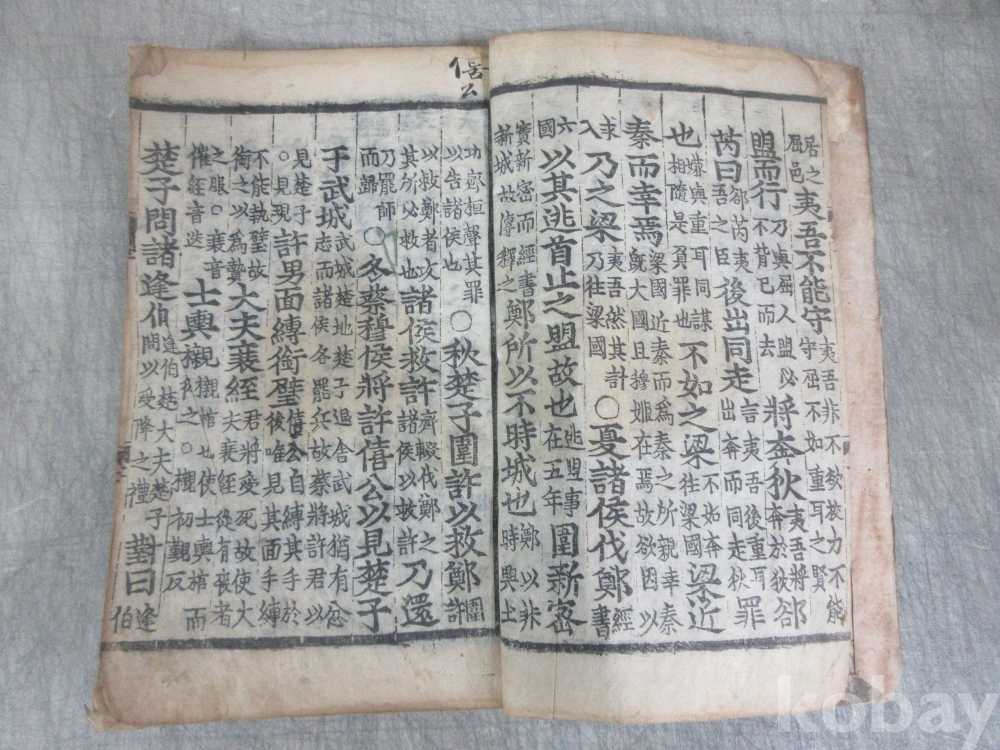 居之屈邑夷吾不能守夷吾非不欲校力不能守屈不如重耳之賢
盟而行刀與屈人盟必不背已而去將奔狄夷吾將奔於狄郤
芮曰郤芮夷吾之臣後出同走言夷吾後重耳出奔而同走狄罪
也嫌與重耳同謀相隨是負罪也不如之梁不如奔往梁國梁近
秦而幸焉梁國近秦而爲秦之所親幸秦旣大國且穆姬在焉故欲因以
求入乃之梁夷吾然其計乃往梁國○夏諸侯伐鄭經書
六國以其逃首止之盟故也逃盟事在五年圍新密
寶新密而經書新城故傳釋之鄭所以不時城也鄭以非時興土
僖公
功齊桓聲其罪以告諸侯也○秋楚子圍許以救鄭圍許
以救鄭者攻其所必救也諸侯救許齊輟伐鄭之諸侯以救許乃還
刀罷師而歸○冬蔡穆侯將許僖公以見楚子
于武城武城楚地楚子退舍武城猶有忿志而諸侯各罷兵故蔡將許君以
見楚子○見現許男面縛銜璧僖公自縛其手於後唯見其面手縛
不能執璧故銜之以爲贄大夫衰絰君將受死故使大夫衰絰從有喪者
之服○衰音催絰音迭士輿櫬櫬棺也使士輿棺而從之○櫬初覲反
楚子問諸逢伯逢伯楚大夫楚子問以受降之禮對曰逢伯
kobay